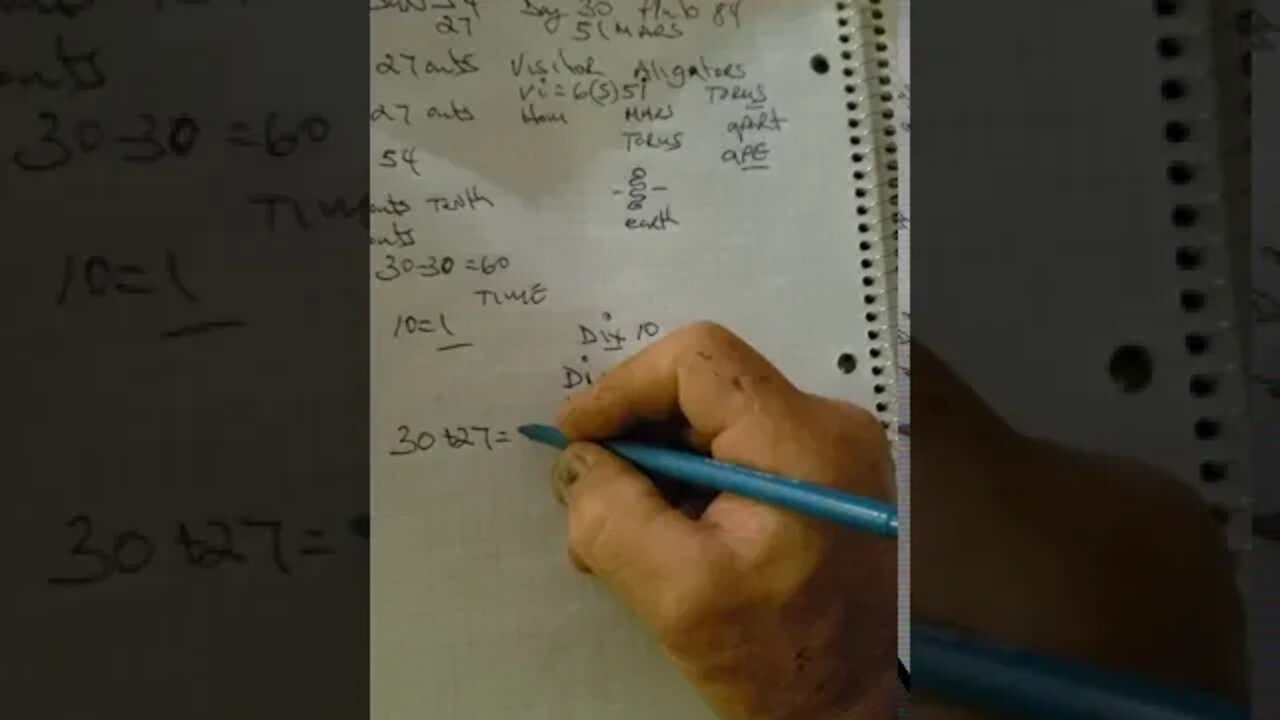 Day 30 84
27 51 MARS
27 ants Visitor Aligators
Vi=6(5)51 TORUS
27 ants Hour MARS apart
54 TORUS APE
ants Tenth
earth
ants
30-30=60
TIME
10=1 Dix 10
Di
30+27=